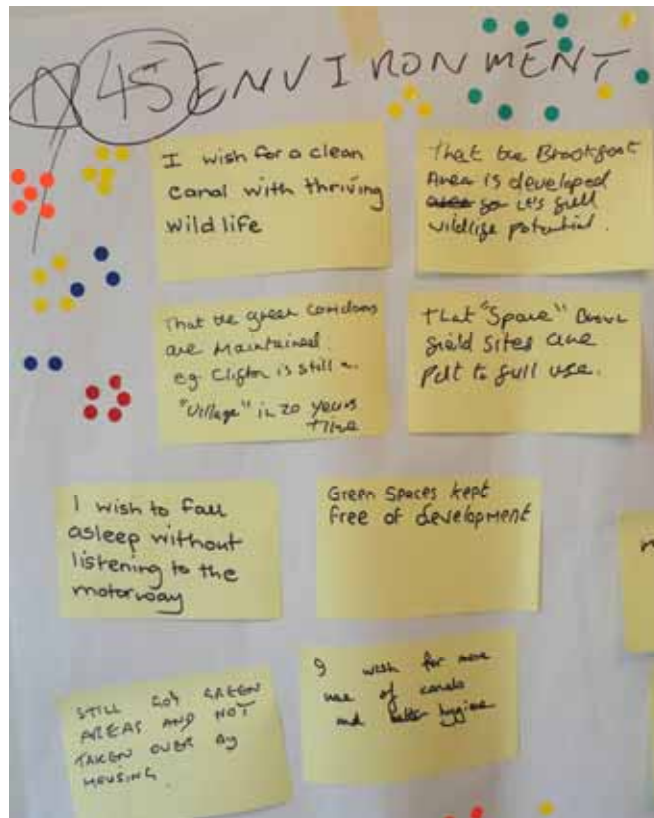 45 ENVIRONMENT
I wish for a clean
canal with thriving
wildlife
That the Brookfoot
Area is developed
to it's full
wildlife potential.
That the green corridors
are maintained.
eg Clifton is still a
"Village" in 20 years
time
That "Spare" Brown
field sites are
put to full use.
I wish to fall
asleep without
listening to the
motorway
Green Spaces kept
free of development
STILL GOT GREEN
AREAS AND NOT
TAKEN OVER BY
HOUSING.
I wish for more
use of canals
and better hygiene